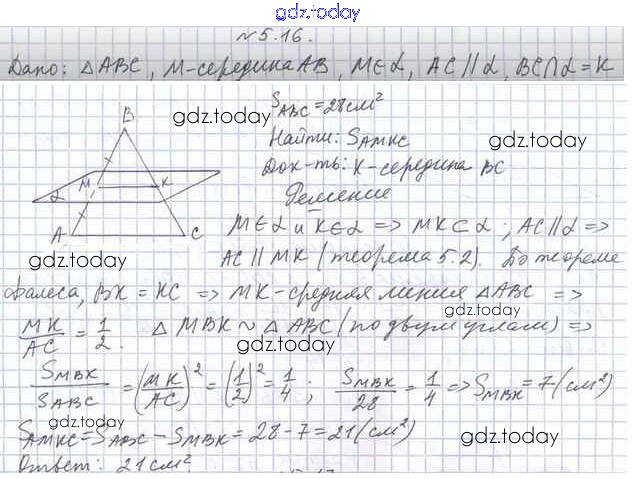 gdz.today
№5.16.
Дано: △ABC, M-середина AB, M∈α, AC∥α, BC∩α=K
S_ABC=28см²
gdz.today
Найти: S_AMKC
gdz.today
Док-ть: K-середина BC
Решение
B
M
K
α
A
C
M∈α и K∈α => MK⊂α, AC∥α =>
AC∥MK (теорема 5.2). По теореме
gdz.today
Фалеса, BK=KC => MK-средняя линия △ABC =>
MK/AC = 1/2. △MBK ~ △ABC (по двум углам) =>
gdz.today
S_MBK/S_ABC = (MK/AC)² = (1/2)² = 1/4; S_MBK/28 = 1/4 => S_MBK=7(см²)
gdz.today
S_AMKC=S_ABC-S_MBK=28-7=21(см²)
gdz.today
Ответ: 21см²